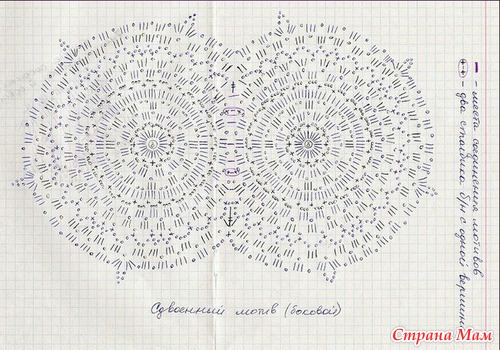 Сдвоенный мотив (боковой)
- места соединения мотивов
- два столбика б/н с одной вершиной
Страна Мам